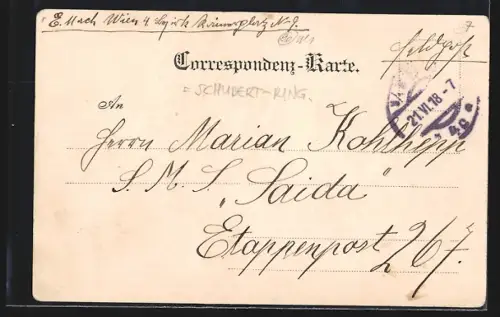 E. Mach Wien 4 bezirk N 7.
7
Feldpost
Correspondenz-Karte.
= SCHUBERT-RING.
21.VI.18-7
* 49 *
An
Herrn Marian Kohlhepp
S. M. S. „Saida"
Etappenpost 267.